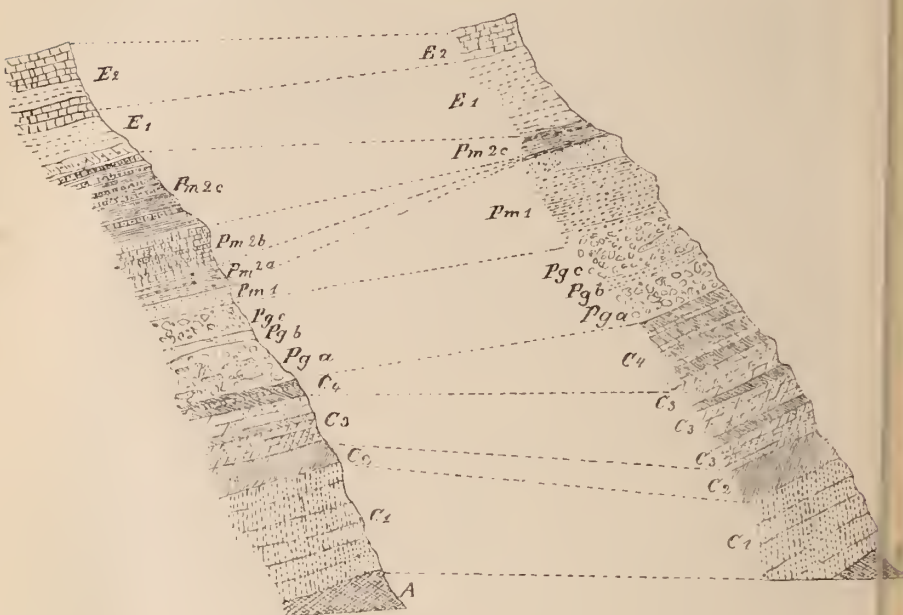 E2
E1
Pm2c
Pm2b
Pm2a
Pm1
Pgc
Pgb
Pga
C4
C3
C2
C1
A
E2
E1
Pm2c
Pm1
Pgc
Pgb
Pga
C4
C3
C3
C3
C2
C1